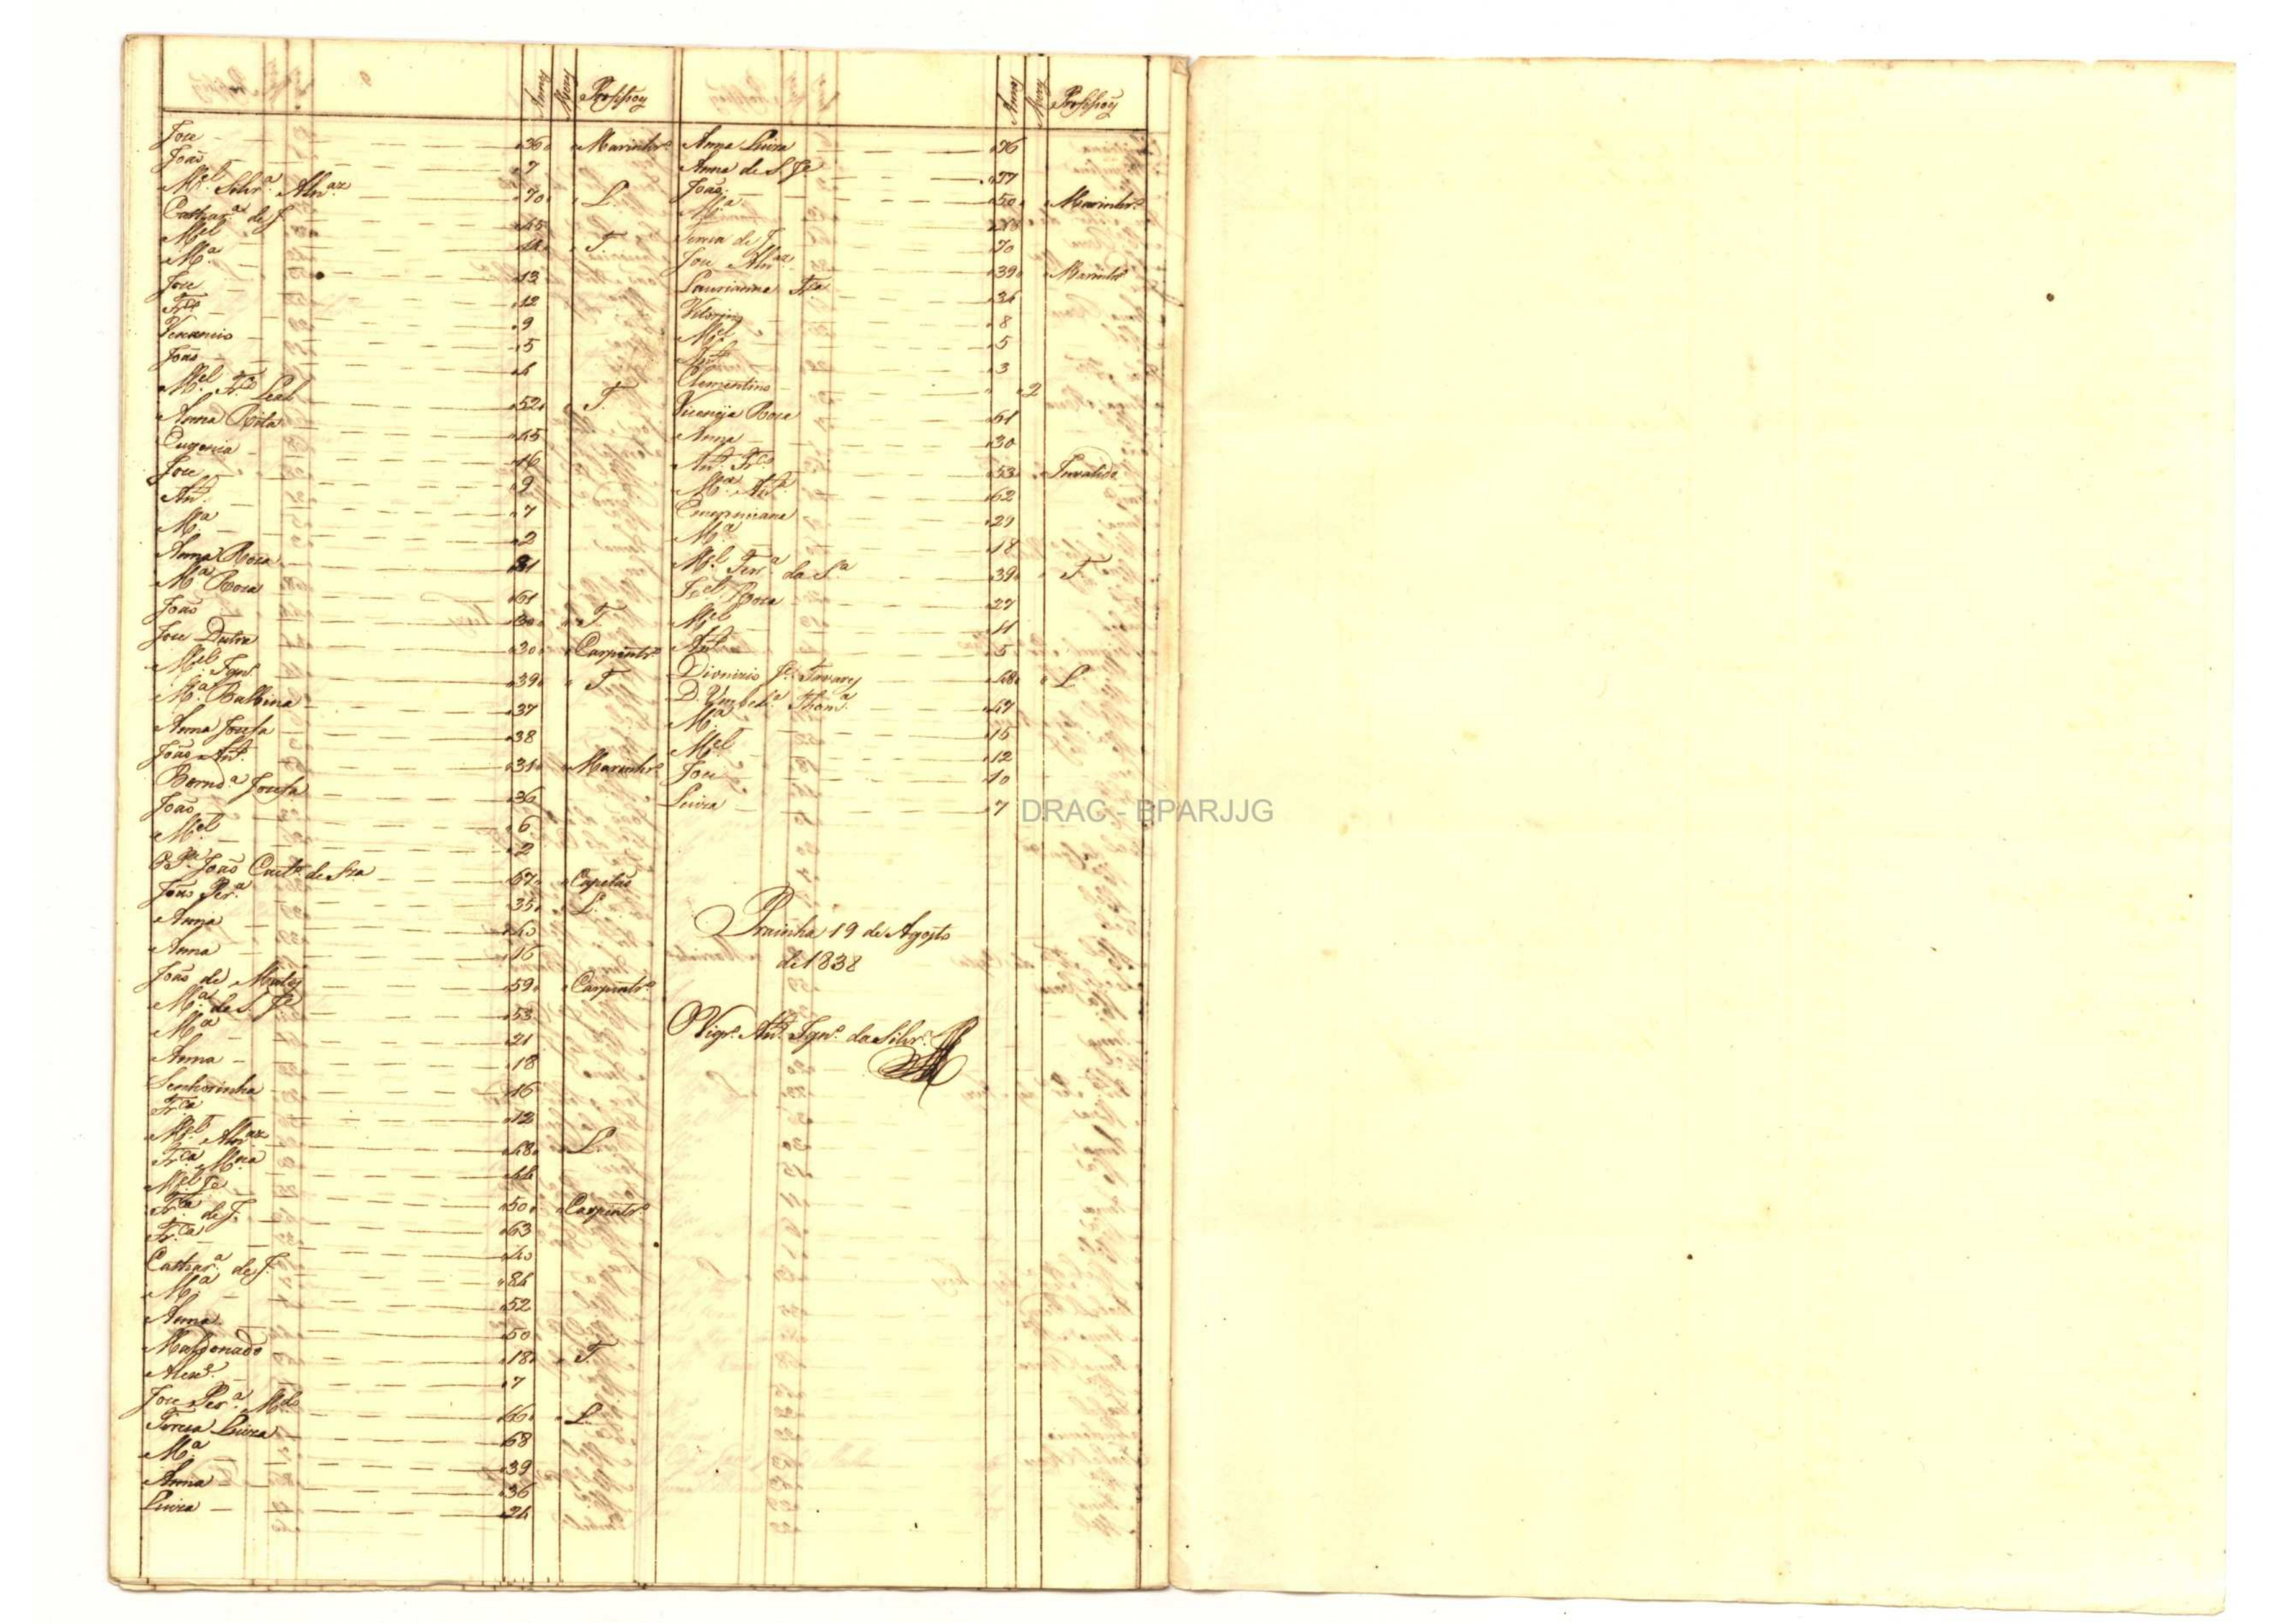 Annos Mezes Profissoẽs
Joze 36 Marinhrº
João 7
Mel Silvrª Alvaz 70 L.
Catharª de J. 45
Mel 44 T.
Mª 13
Joze 12
Frcº 9
Venancio 5
João 4
Mel Frcº Leal 52 T.
Anna Rita 45
Eugenia 16
Joze 9
Antº 7
Mª 2
Anna Roza 81
Mª Roza 61
João 30 T.
Joze Dutra 30 Carpintrº
Mel Ignº 39 T.
Mª Balbina 37
Anna Jozefa 38
João Antº 31 Marinhrº
Berndª Jozefa 36
João 6
Mel 2
João Caetº de Sza 67 Capitão
João Perª 35 L.
Anna 40
Anna 16
João de Mattos 59 Carpintrº
Mª de S. Je 53
Mª 21
Anna 18
Senhorinha 16
Frca 12
Mel Alvaz 48 L.
Frca Mª 44
Mel Je 50 Carpintrº
Frca de J. 63
Frca 40
Catharª de J. 84
Mª 52
Anna 50
Maldonado 18 T.
Alexe 7
Joze Perª Mdo 66 L.
Tereza Luiza 68
Mª 39
Anna 36
Luiza 24
Annos Mezes Profissoẽs
Anna Luiza 76
Anna de S. Je 77
João 50 Marinhrº
Mª
Tereza de J. 70
Joze Alvaz 39 Marinhrº
Laurianna 34
Vitorino 8
Mel 5
Antº 3
Clementino 2
Vicencia Roza 61
Anna 30
Antº Frcº 53 Invalido
Mª Antª 62
Emerenciana 29
Mª 18
Mel Ferª da Sª 39 T.
Izel Roza 27
Mel 11
Antº 5
Dionizio Je Tavares 48 L.
D. Umbelª Thomª 47
Mª 15
Mel 12
Joze 10
Luiza 7
Prainha 19 de Agosto
de 1838
O Vigrº Antº Ignº da Silvrª
DRAC - BPARJJG